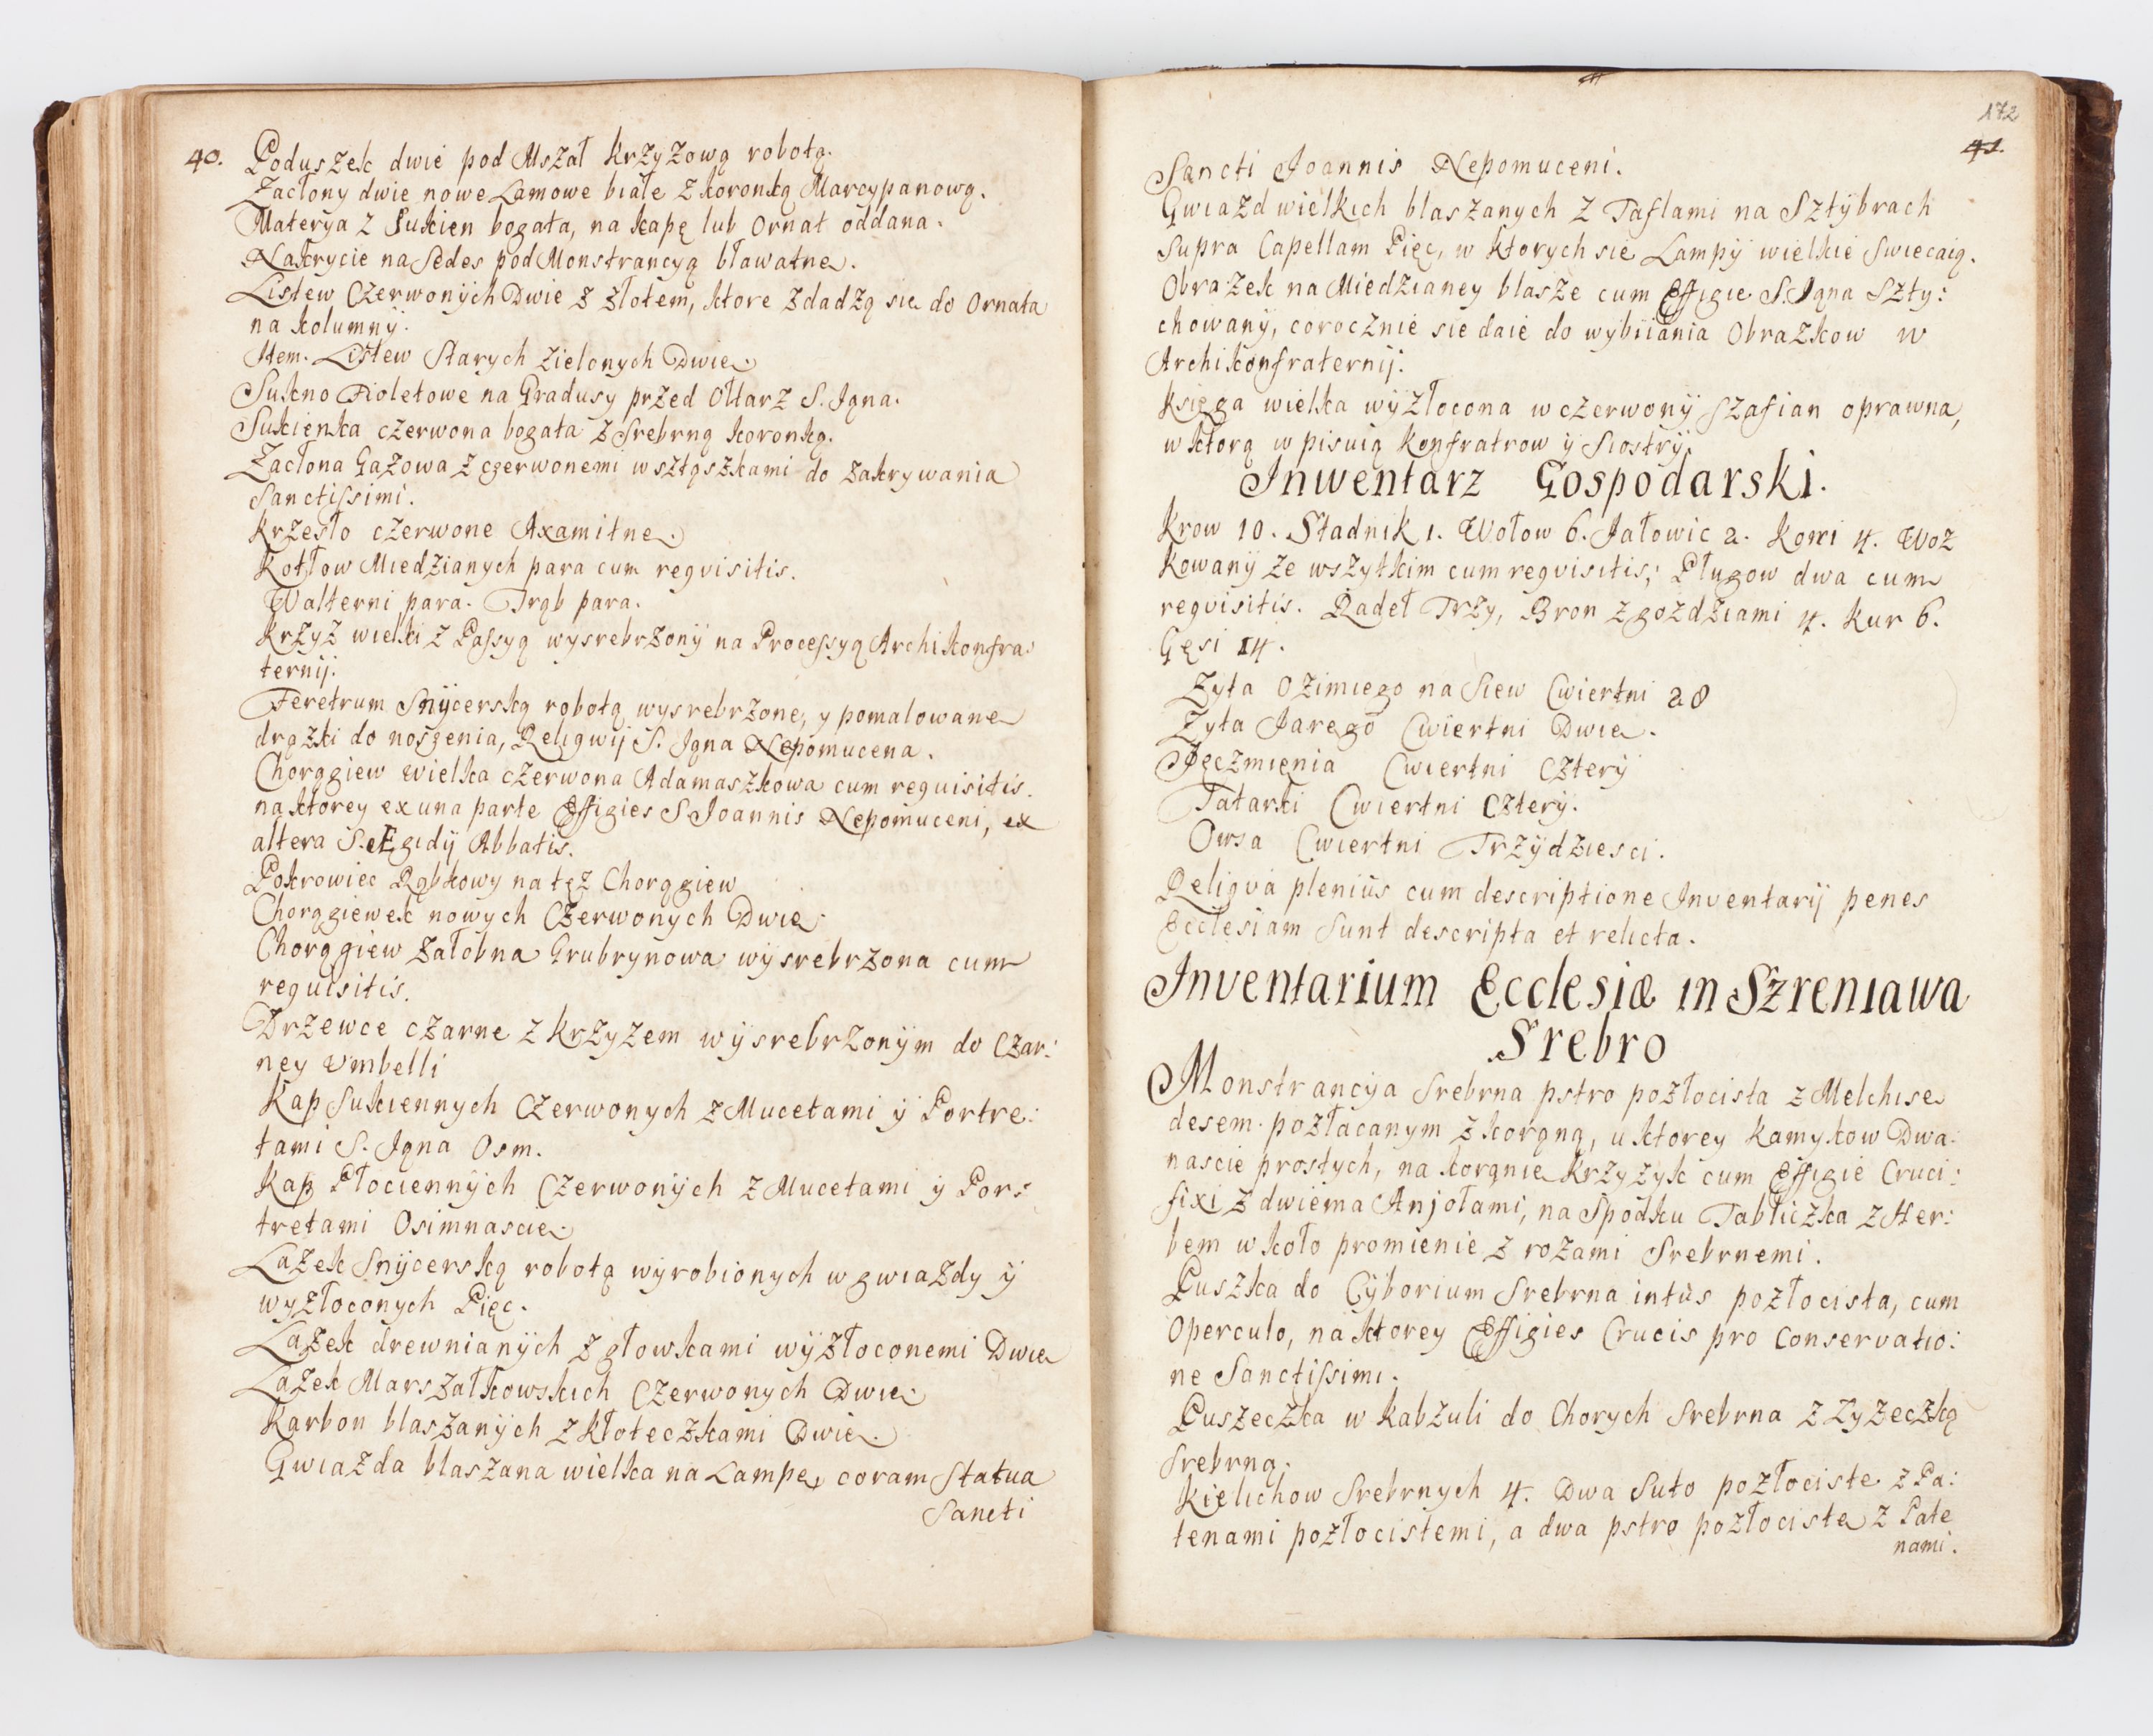 40. Poduszek dwie pod Mszał krzyzową robotą.
Zacłony dwie nowe Lamowe białe z koronką Marcypanową.
Materya z Sukien bogata, na kapę lub Ornat oddana.
Nakrycie na Sedes pod Monstrancyą bławatne.
Listew Czerwonÿch Dwie z złotem, ktore zdadzą sie do Ornata
na kolumnÿ.
Item. Listew Starych zielonych Dwie.
Sukno Fioletowe na Gradusy przed Ołtarz S. Jana.
Sukienka czerwona bogata z Srebrną koronką.
Zacłona Gazowa z czerwonemi wsztąszkami do zakrywania
Sanctissimi.
krzesło czerwone Axamitne.
Kotłow Miedzianych para cum reqvisitis.
Walterni para. Trąb para.
krzyz wielki z Passyą wysrebrzonÿ na Processyą Archikonfra:
ternij.
Feretrum Snÿcerską robotą wysrebrzone, y pomalowane
drązki do noszenia, Reliqwij S. Jana Nepomucena.
Chorągiew wielka czerwona Adamaszkowa cum requisitis.
na ktorey ex una parte Effigies S. Joannis Nepomuceni, ex
altera S. Ægidÿ Abbatis.
Pokrowiec Rąbkowy na tęz Chorągiew
Chorągiewek nowych Czerwonych Dwie.
Chorągiew załobna Grubrynowa wÿsrebrzona cum
requisitis.
Drzewce czarne z krzyzem wÿsrebrzonÿm do Czar:
ney Umbelli
Kap Sukiennych Czerwonych z Mucetami ÿ Portre:
tami S. Jana Osm.
Kap Płociennÿch Czerwonÿch z Mucetami ÿ Por:
tretami Osimnascie.
Lazek Snÿcerską robotą wyrobionych w gwiazdy ÿ
wyzłoconych Pięc.
Lazek drewnianÿch z głowkami wÿzłoconemi Dwie
Lazek Marszałkowskich Czerwonych Dwie.
Karbon blaszanÿch z kłoteczkami Dwie.
Gwiazda blaszana wielka na Lampę, coram Statua
Sancti
172
41.
Sancti Joannis Nepomuceni.
Gwiazd wielkich blaszanych z Taflami na Sztÿbrach
Supra Capellam Pięc, w ktorych sie Lampÿ wielkie Swiecaią.
Obrazek na Miedzianey blasze cum Effigie S. Jana Szty:
chowanÿ, corocznie sie daie do wybiiania Obrazkow w
Archikonfraternij.
księga wielka wÿzłocona w czerwonÿ szafian oprawna,
w ktorą wpisuią konfratrow ÿ Siostrÿ.
Inwentarz Gospodarski.
krow 10. Stadnik 1. Wołow 6. Jałowic 2. koni 4. Woz
kowanÿ ze wszytkim cum reqvisitis; Pługow dwa cum
reqvisitis. Radeł Trzy, Bron z gozdziami 4. kur 6.
Gęsi 14.
Zyta Ozimiego na Siew Cwiertni 28
Zyta Jarego Cwiertni Dwie.
Jęczmienia Cwiertni Czterÿ
Tatarki Cwiertni Czterÿ.
Owsa Cwiertni Trzÿdziesci.
Reliqva pleniùs cum descriptione Inventarij penes
Ecclesiam Sunt descripta et relicta.
Inventarium Ecclesiæ in Szreniawa
Srebro
Monstrancÿa Srebrna pstro pozłocista z Melchise
desem pozłacanym z koroną, u ktorey kamykow Dwa:
nascie prostych, na koronie krzyzyk cum Effigie Cruci:
fixi z dwiema Anjołami, na Spodku Tabliczka z Her:
bem w koło promienie z rozami Srebrnemi.
Puszka do Cÿborium Srebrna intùs pozłocista, cum
Operculo, na ktorey Effigies Crucis pro Conservatio:
ne Sanctissimi.
Puszeczka w kabzuli do Chorych Srebrna z Zyzeczką
Srebrną.
kielichow Srebrnych 4. Dwa Suto pozłociste z Pa:
tenami pozłocistemi, a dwa pstro pozłociste z Pate
nami.